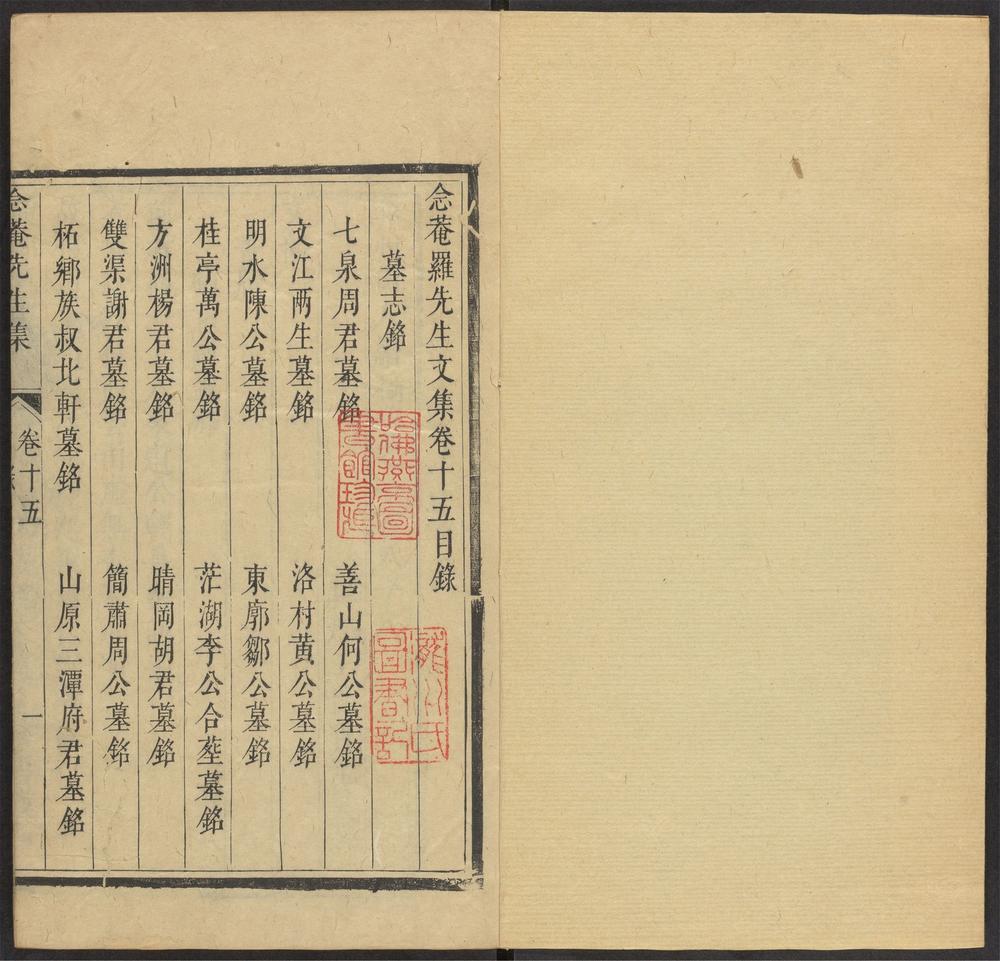 念菴羅先生文集卷十五目錄
墓志銘
七泉周君墓銘 善山何公墓銘
文江兩生墓銘 洛村黃公墓銘
明水陳公墓銘 東廓鄒公墓銘
桂亭萬公墓銘 茫湖李公合塟墓銘
方洲楊君墓銘 晴岡胡君墓銘
雙渠謝君墓銘 簡肅周公墓銘
柘鄉族叔北軒墓銘 山原三潭府君墓銘
念菴先生集 卷十五 一
哈佛燕京圖書館珍藏
氏圖書記